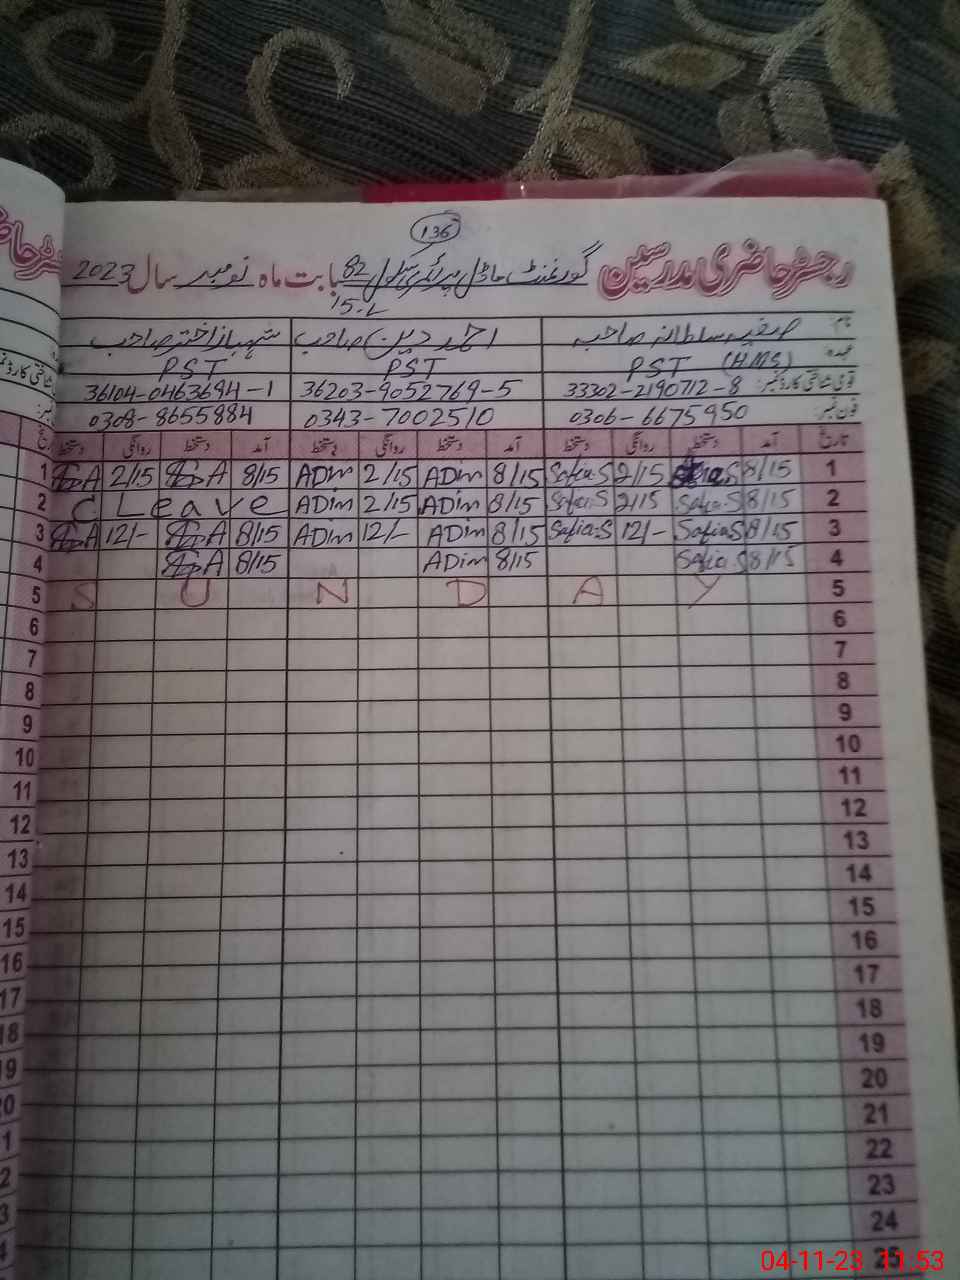 136
رجسٹر حاضری مدرسین گورنمنٹ ماڈل پرائمری سکول 82 بابت ماہ نومبر سال 2023
15-L
نام: صفیہ سلطانہ صاحبہ احمد دین صاحب شہباز اختر صاحب
عہدہ PST (HMS) PST PST
قومی شناختی کارڈ نمبر: 33302-2190712-8 36203-9052769-5 36104-0463694-1
فون نمبر: 0306-6675950 0343-7002510 0308-8655884
تاریخ آمد دستخط روانگی دستخط آمد دستخط روانگی دستخط آمد دستخط روانگی دستخط
1 8/15 Safia.S 2/15 Safia.S 8/15 ADim 2/15 ADim 8/15 2/15
2 8/15 Safia.S 2/15 Safia.S 8/15 ADim 2/15 ADim C Leave
3 8/15 Safia.S 12/- Safia.S 8/15 ADim 12/- ADim 8/15 12/-
4 8/15 Safia.S 8/15 ADim 8/15
5 S U N D A Y
6
7
8
9
10
11
12
13
14
15
16
17
18
19
20
21
22
23
24
25
04-11-23 11:53